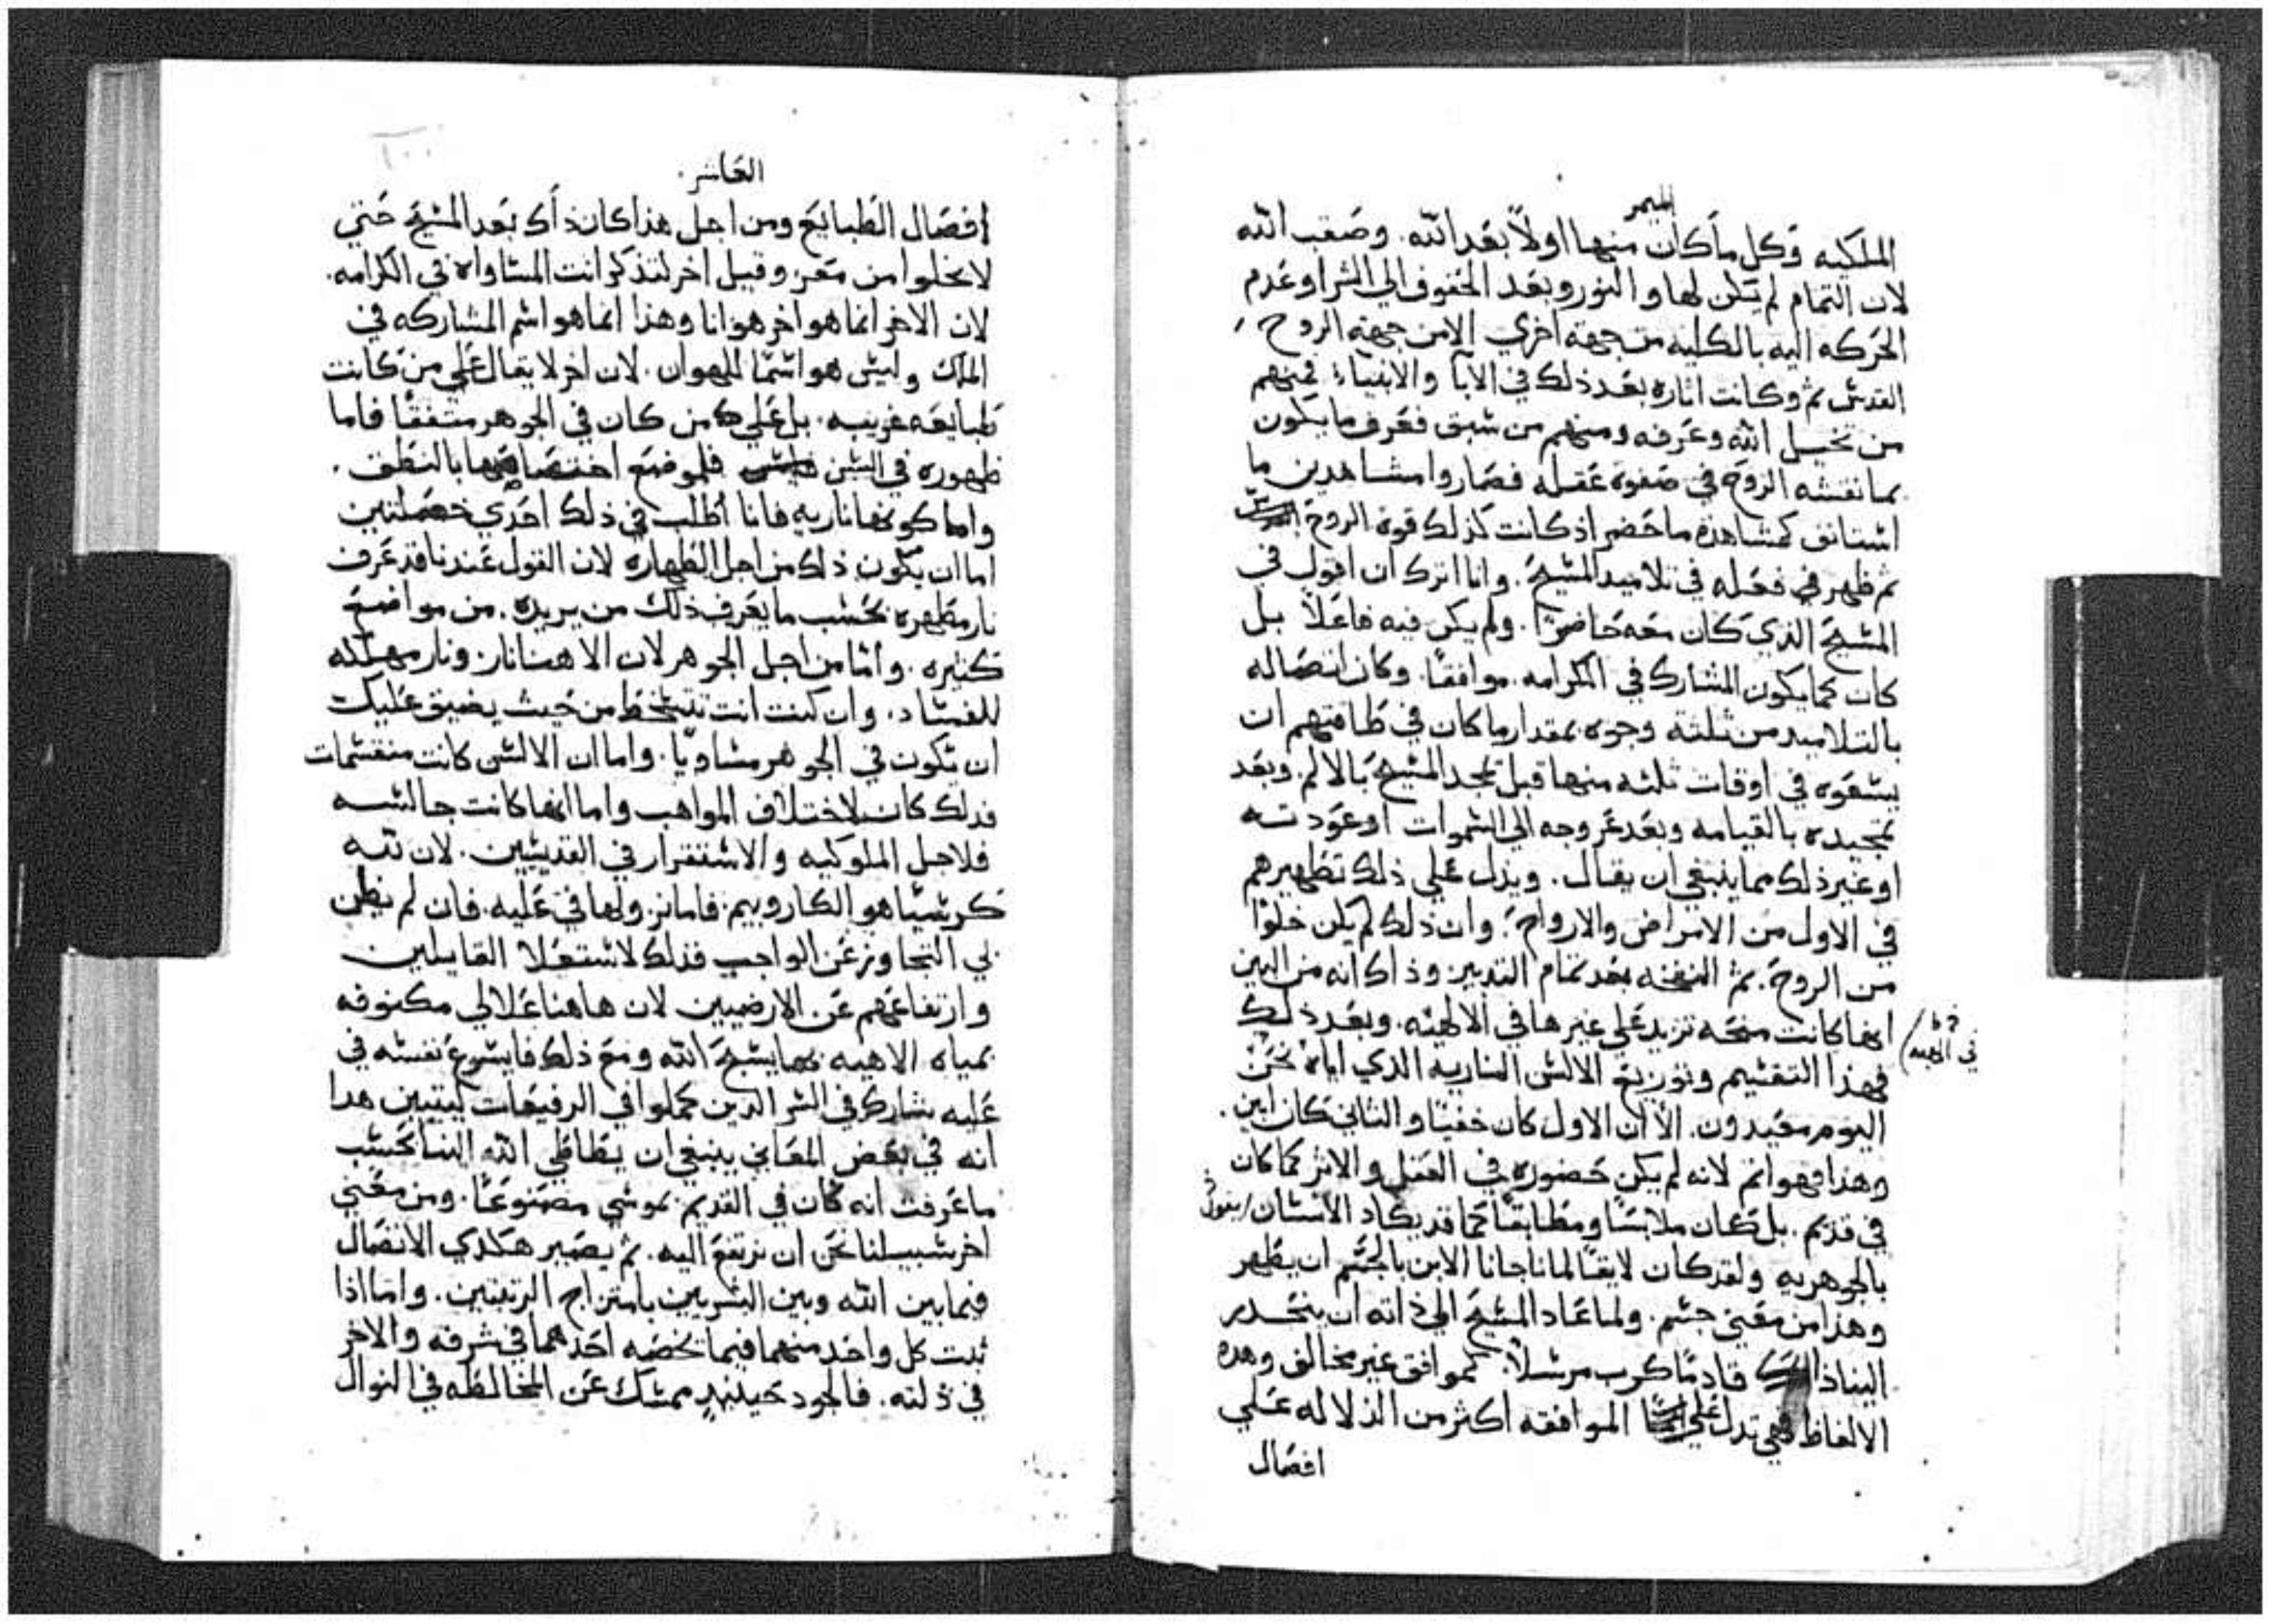 الميمر
الملكيه وكل ما كان منها اولاً بعد الله. وصعب الله
لان التمام لم يكن لها والنور وبعد الحقوف الي الشر او عدم
الحركه اليه بالكليه من جهة اخري الا من جهة الروح
القدس ثم وكانت اثاره بعد ذلك في الابا والانبياء فمنهم
من تخيل الله وعرفه ومنهم من سبق فعرف ما يكون
بما نقشه الروح في صفوة عقله فصاروا مشاهدين ما
استانف كمشاهدة ما حضر اذ كانت كذلك قوة الروح
ثم ظهر في فعله في تلاميد المسيح. وانا اترك ان اقول في
المسيح الذي كان معه حاضرًا. ولم يكن فيه فاعلاً بل
كان كما يكون المشارك في الكرامه. موافقًا. وكان اتصاله
بالتلاميد من ثلثه وجوه بمقدار ما كان في طاقتهم ان
يسعوه في اوقات ثلثه منها قبل تمجد المسيح بالالم. وبعد
تمجيده بالقيامه وبعد عروجه الي السموات او عودته
او غير ذلك مما ينبغي ان يقال. ويدل علي ذلك تطهيرهم
في الاول من الامراض والارواح. وان ذلك لم يكن خلوًا
من الروح. ثم النفخه بعد تمام التدبير وذاك انه من البين
انها كانت منحه تزيد علي غيرها في الالهيه. وبعد ذلك
فهذا التقسيم وتوزيع الالسن الناريه الذي اياه نحن
اليوم معيدون. الا ان الاول كان خفيًا والثاني كان ابين.
وهذا فهو اتم لانه لم يكن حضوره في الفعل والاثر كما كان
في قديم. بل كان ملابسًا ومطابقًا كما قد يكاد الانسان / يقول
بالجوهريه ولقد كان لايقًا لما ناجانا الابن بالجسم ان يظهر
وهذا من معني جسم. ولما عاد المسيح الي ذاته ان ينحدر
الينا ذاك قادمًا كرب مرسلاً. كموافق غير مخالف وهده
الالفاظ فهي تدل علي الموافقه اكثر من الدلاله علي
افصال
في الهبه
العاشر.
افصال الطبايع ومن اجل هذا كان ذاك بعد المسيح حتي
لا يخلوا من معز. وقيل اخر لتذكر انت المساواه في الكرامه.
لان الاخر انما هو اخر هو انا وهذا انما هو اسم المشاركه في
الملك وليس هو اسمًا للهوان. لان اخر لا يقال علي من كانت
طبايعه غريبه. بل علي من كان في الجوهر متفقًا فاما
ظهوره في السن فلموضع اختصاصها بالنطق.
واما كونها ناريه فانا اطلب في ذلك احدي خصلتين
اما ان يكون ذلك من اجل الطهاره لان القول عندنا قد عرف
نار مطهره بحسب ما يعرف ذلك من يريده. من مواضع
كثيره. واما من اجل الجوهر لان الاهنا نار. ونار مهلكه
للفساد. وان كنت انت تتسخط من حيث يضيق عليك
ان يكون في الجوهر مساويًا. واما ان الالسن كانت منقسمات
فدلك كان لاختلاف المواهب واما انها كانت جالسه
فلاجل الملوكيه والاستقرار في القديسين. لان لله
كرسيًا هو الكاروبيم. فاما نزولها في عليه. فان لم يظن
بي التجاوز عن الواجب فدلك لاستعلا القابلين
وارتفاعهم عن الارضيين لان هاهنا علالي مكنوفه
بمياه الاهيه بها يسبح الله ومع ذلك فايسوع نفسه في
عليه شارك في السر الدين كملوا في الرفيعات ليتبين هدا
انه في بعض المعاني ينبغي ان يطاطي الله الينا بحسب
ما عرفت انه كان في القديم بموسي مصنوعًا. ومن معني
اخر سبيلنا نحن ان نرتفع اليه. ثم يصير هكدي الاتصال
فيما بين الله وبين البشريين بامتزاج الرتبتين. واما اذا
ثبت كل واحد منهما فيما يخصه احدهما في شرفه والاخر
في ذلته. فالجود حينيد ممسك عن المخالطه في النوال